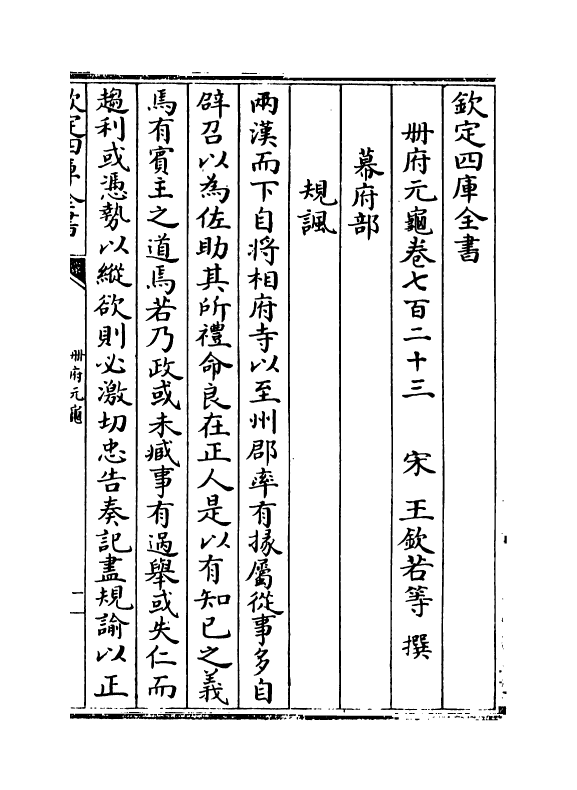 欽定四庫全書
冊府元龜卷七百二十三　宋　王欽若等　撰
幕府部
規諷
兩漢而下自將相府寺以至州郡率有掾屬從事多自
辟召以為佐助其所禮命良在正人是以有知已之義
焉有賓主之道焉若乃政或未臧事有過舉或失仁而
趨利或憑勢以縱欲則必激切忠告奏記盡規諭以正
欽定四庫全書
冊府元龜